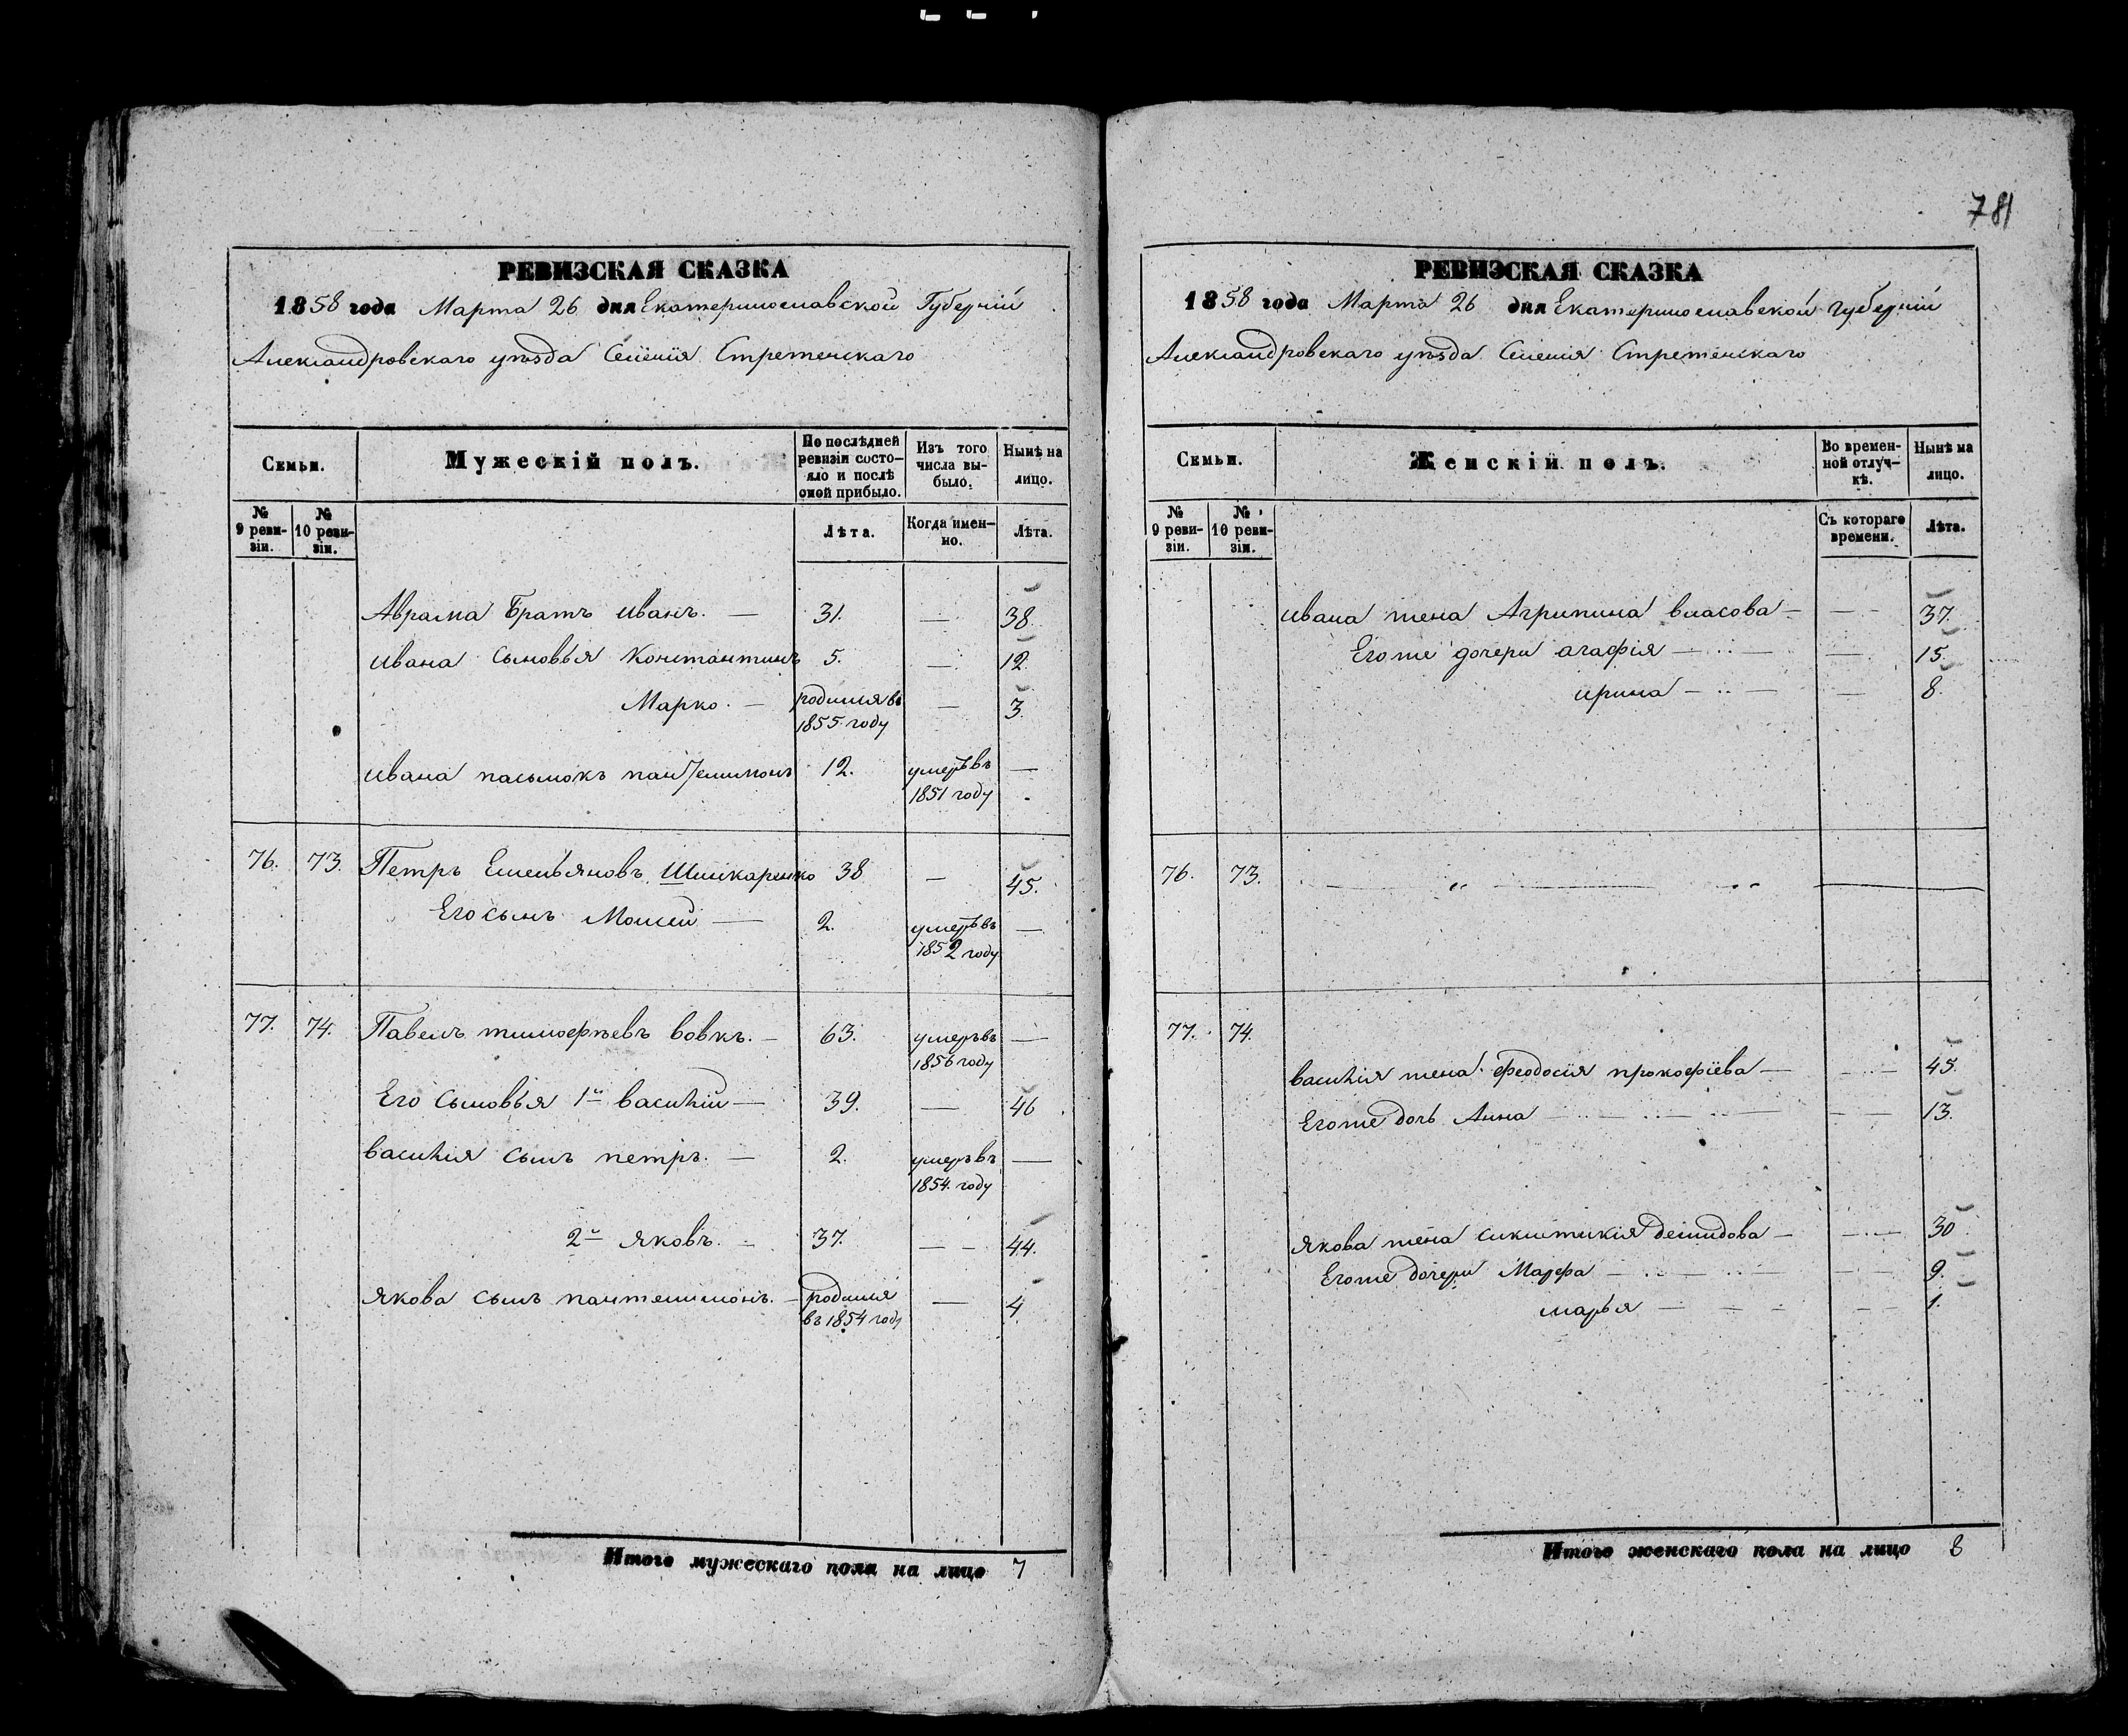 РЕВИЗСКАЯ СКАЗКА
1858 года Марта 26 дня Екатеринославской Губерніи
Александровскаго уѣзда Селенія Стретенскаго
Семьи.
Мужескій полъ.
По послѣдней ревизіи состояло и послѣ оной прибыло.
Изъ того числа выбыло.
Нынѣ на лицо.
№ 9 ревизіи.
№ 10 ревизіи.
Лѣта.
Когда именно.
Лѣта.
Аврама Братъ иванъ. — 31. — 38.
ивана сыновья Константинъ 5. — 12.
Марко. — родился въ 1855. году — 3.
ивана пасынокъ пантелимонъ 12. умеръ въ 1851 году —
76. 73. Петръ Емельяновъ Шишкаренко 38 — 45.
Его сынъ Мойсей — 2. умеръ въ 1852 году —
77. 74. Павелъ тимофѣевъ вовкъ. — 63. умеръ въ 1856 году —
Его сыновья 1й василій — 39. — 46
василія сынъ петръ. — 2. умеръ въ 1854. году —
2й яковъ. — 37. — — 44.
якова сынъ пантелимонъ. — родился въ 1854 году — 4
Итого мужескаго пола на лицо 7
781
РЕВИЗСКАЯ СКАЗКА
1858 года Марта 26 дня Екатеринославской губерніи
Александровскаго уѣзда Селенія Стретенскаго
Семьи.
Женскій полъ.
Во временной отлучкѣ.
Нынѣ на лицо.
№ 9 ревизіи.
№ 10 ревизіи.
Съ котораго времени.
Лѣта.
ивана жена Агрипина власова — — 37.
Егоже дочери агафія — — 15.
ирина — — 8.
76. 73.
77. 74.
василія жена феодосія прокофіева — — 45.
Егоже дочь Анна — — 13.
якова жена демидова — — 30
Егоже дочери Марфа — — 9.
марья — — 1.
Итого женскаго пола на лицо 8